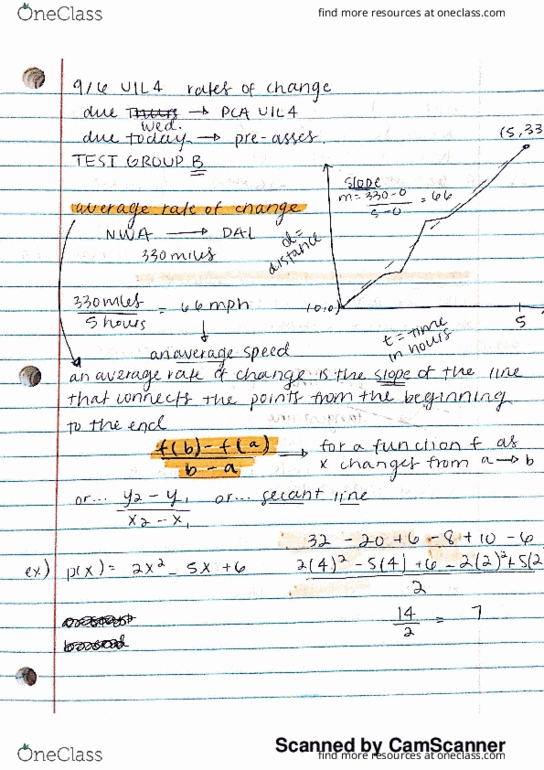 OneClass
find more resources at oneclass.com
9/6 U1L4 rates of change
due Thurs → PCA U1L4
Wed.
due today → pre-asses.
TEST GROUP B
(5, 33
slope
m = 330-0 / 5-0 = 66
average rate of change
NWA → DAL
330 miles
d = distance
330 miles / 5 hours = 66 mph
(0,0)
5
t = time in hours
an average speed
an average rate of change is the slope of the line
that connects the points from the beginning
to the end
f(b) - f(a) / b - a → for a function f as
x changes from a → b
or... y2 - y1 / x2 - x1 or... secant line
32 - 20 + 6 - 8 + 10 - 6
ex) p(x) = 2x² - 5x + 6 2(4)² - 5(4) + 6 - 2(2)² + 5(2
2
14 / 2 = 7
Scanned by CamScanner
OneClass
find more resources at oneclass.com